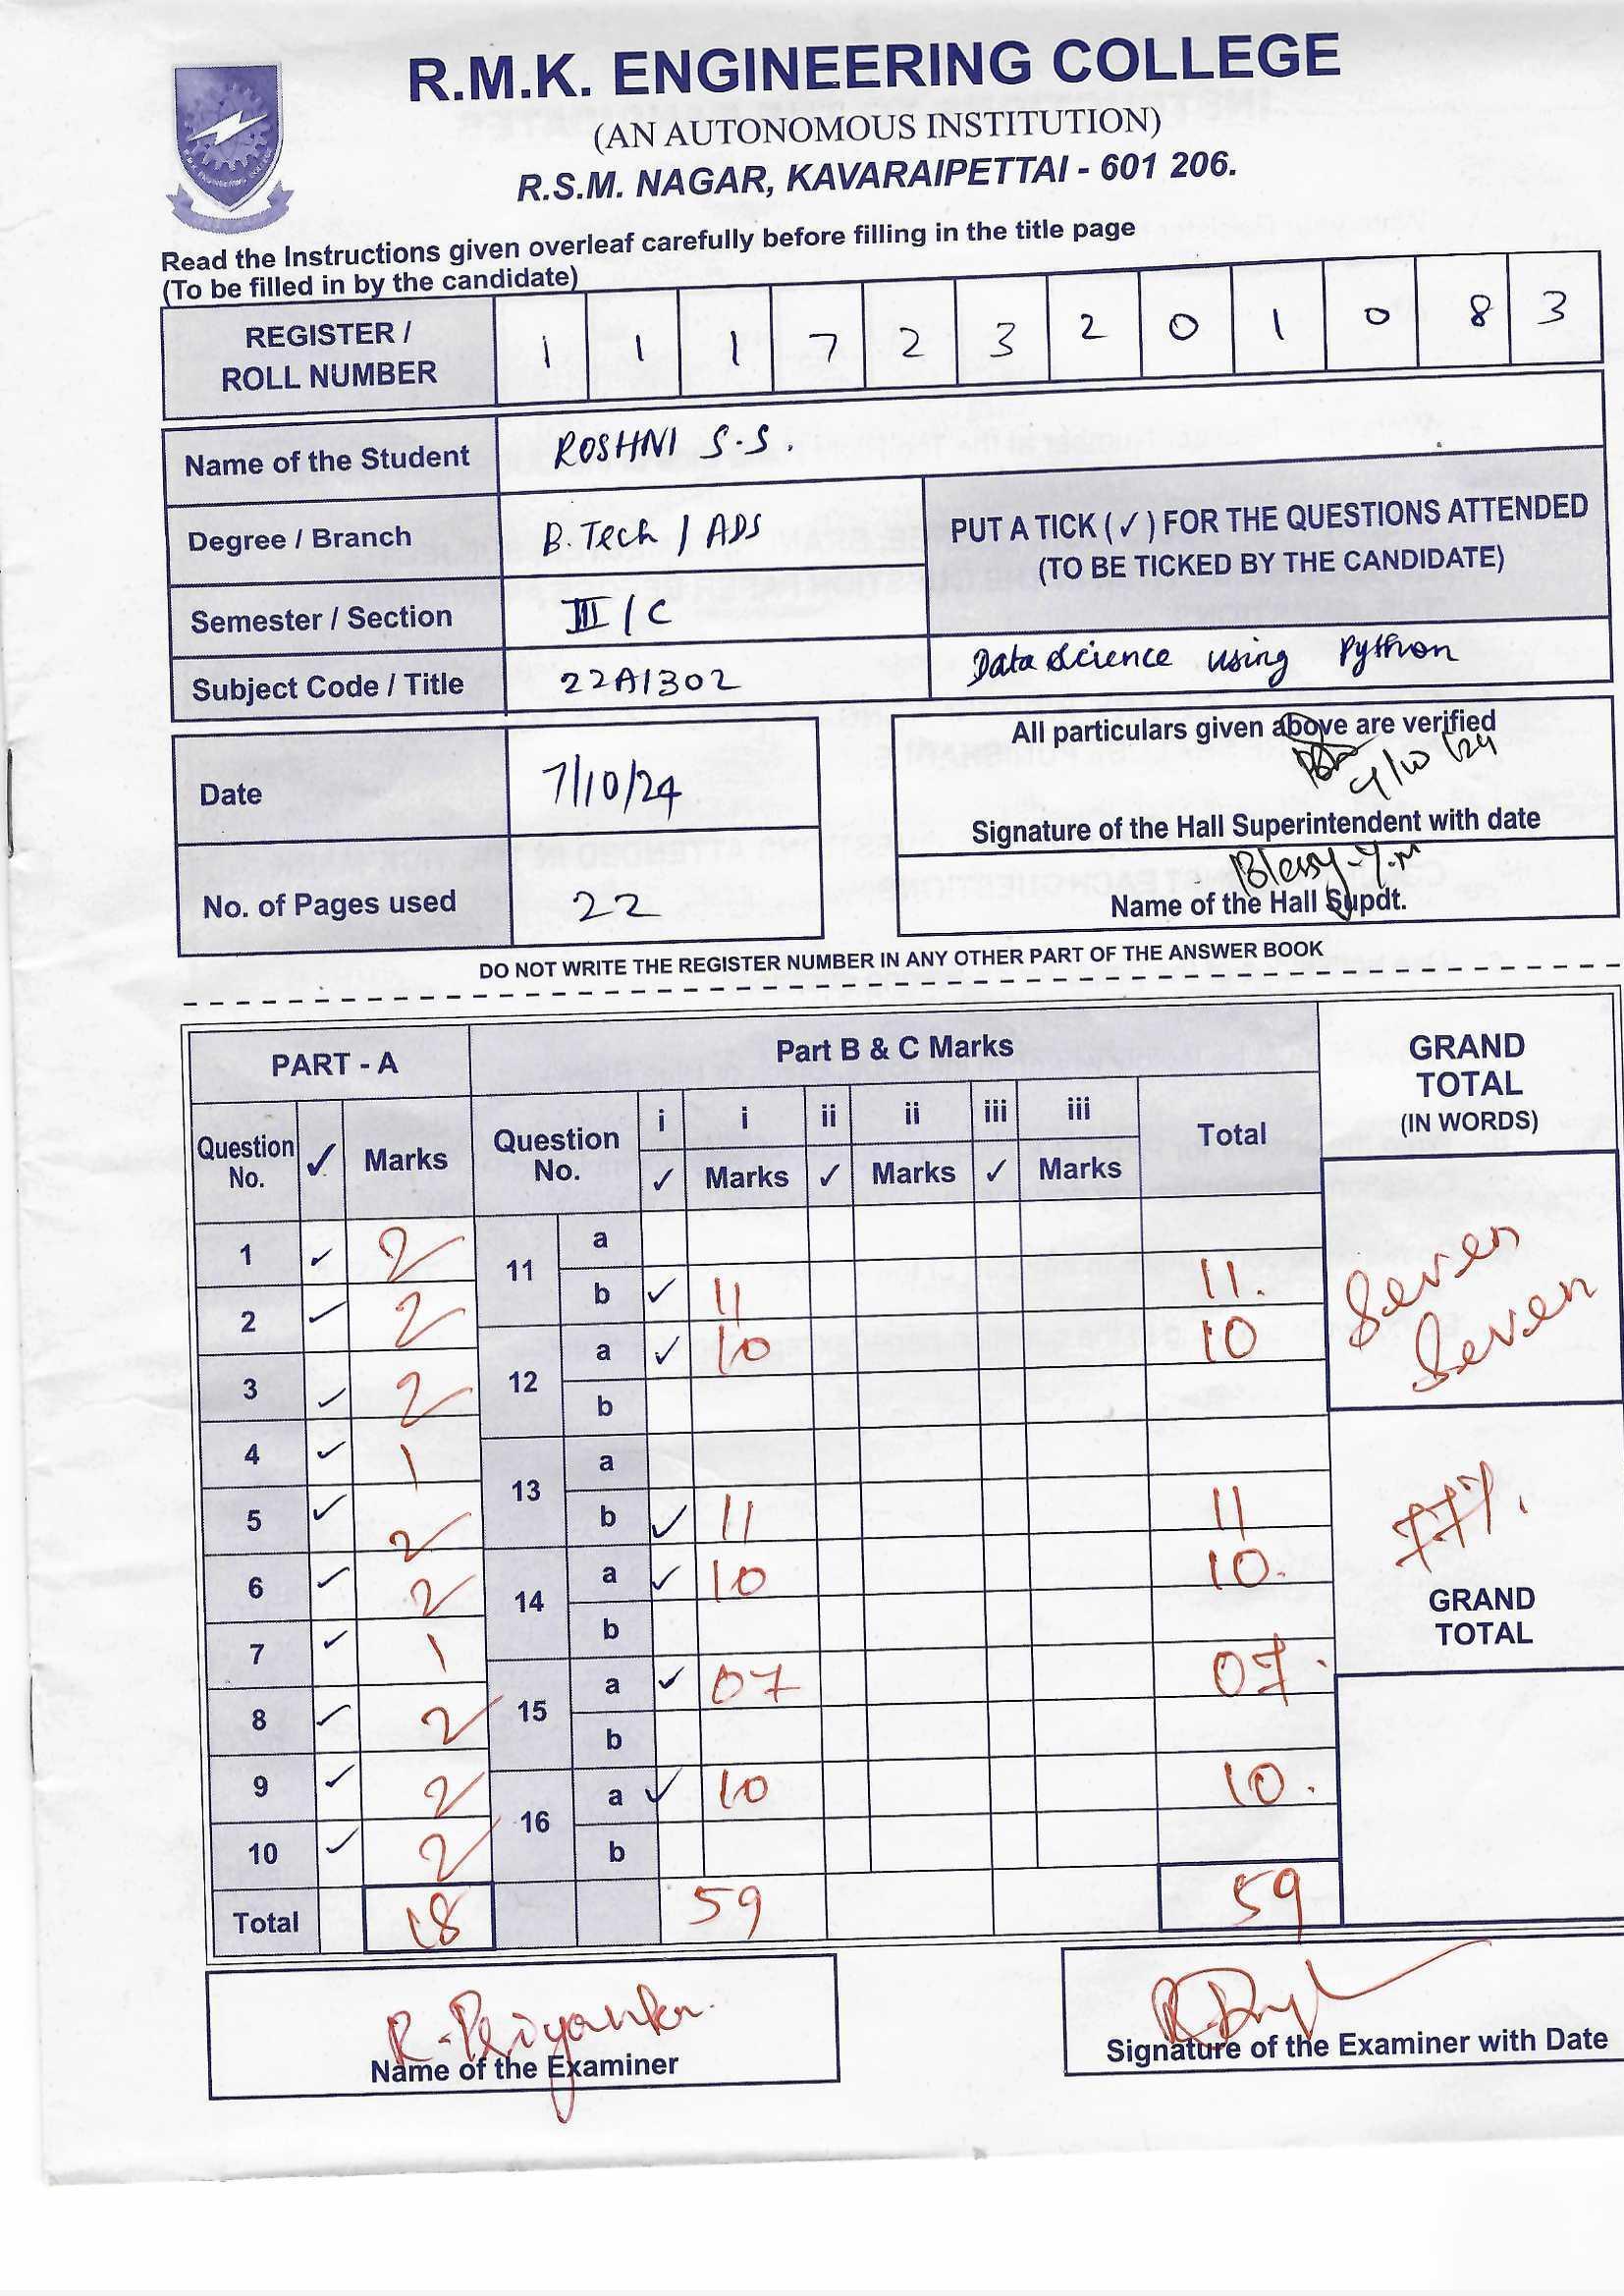 R.M.K. ENGINEERING COLLEGE
(AN AUTONOMOUS INSTITUTION)
R.S.M. NAGAR, KAVARAIPETTAI - 601 206.
Read the Instructions given overleaf carefully before filling in the title page
(To be filled in by the candidate)
REGISTER / ROLL NUMBER 1 1 1 7 2 3 2 0 1 0 8 3
Name of the Student ROSHNI S.S.
Degree / Branch B.Tech / ADS
PUT A TICK (✓) FOR THE QUESTIONS ATTENDED
(TO BE TICKED BY THE CANDIDATE)
Semester / Section III / C
Subject Code / Title 22AI302 Data Science using Python
All particulars given above are verified
Date 7/10/24
Signature of the Hall Superintendent with date
Blessy.Y.M
No. of Pages used 22
Name of the Hall Supdt.
DO NOT WRITE THE REGISTER NUMBER IN ANY OTHER PART OF THE ANSWER BOOK
PART - A
Question No. ✓ Marks
1 ✓ 2
2 ✓ 2
3 ✓ 2
4 ✓ 1
5 ✓ 2
6 ✓ 2
7 ✓ 1
8 ✓ 2
9 ✓ 2
10 ✓ 2
Total 18
Part B & C Marks
Question No. i ✓ i Marks ii ✓ ii Marks iii ✓ iii Marks Total
11 a
b ✓ 11 11.
12 a ✓ 10 10
b
13 a
b ✓ 11 11
14 a ✓ 10 10.
b
15 a ✓ 07 07.
b
16 a ✓ 10 10.
b
59 59
GRAND
TOTAL
(IN WORDS)
Seven
Seven
77%.
GRAND
TOTAL
R. Priyanka.
Name of the Examiner
Signature of the Examiner with Date